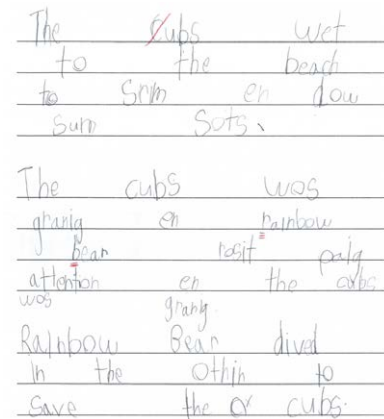 The Cubs wet
to the beach
to Srm en dow
sum Sots.
The cubs wos
granig en rainbow
bear rosit palg
attention en the cubs
wos grang.
Rainbow Bear dived
in the othin to
save the or cubs.